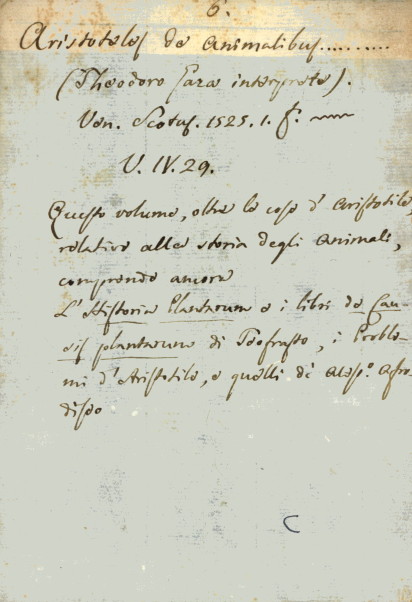 6.
Aristoteles de Animalibus..........
(Theodoro Gaza interprete).
Ven. Scotus. 1525. 1. f.
V. IV. 29.
Questo volume, oltre le cose d'Aristotile,
relative alla storia degli animali,
comprende ancora
L'Historia Plantarum e i libri de Cau-
sis plantarum di Teofrasto, i Proble-
mi d'Aristotile, e quelli di Aless.o Afro-
diseo